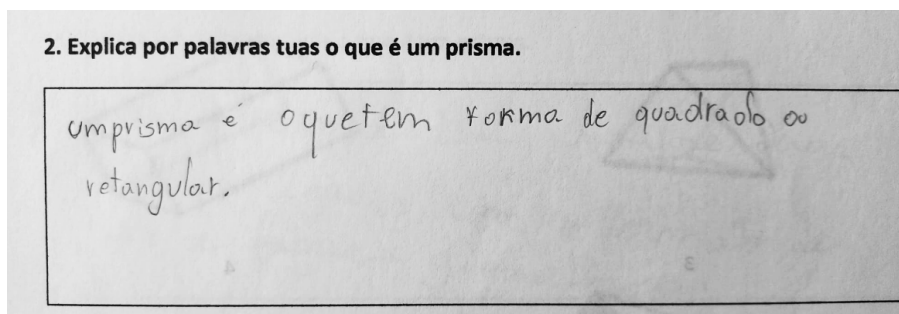 2. Explica por palavras tuas o que é um prisma.
um prisma é oquetem forma de quadrado ou
retangular.